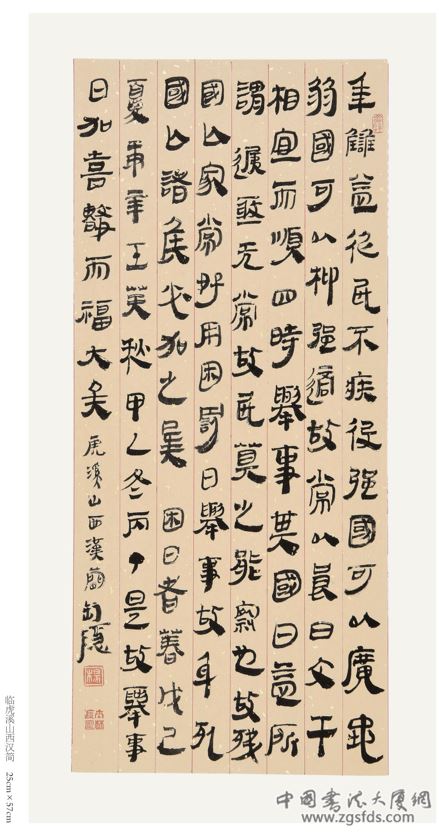 年雖益後民不疾役强國可以廣地
弱國可以抑强適故常以良日支干
相宜而順四時舉事其國日益所
謂无常故民莫之能察也故殘
國亡家常以用困罰日舉事故身死
國亡諸侯必加之吳 困日者春戊己
夏庚辛壬癸秋甲乙冬丙丁是故舉事
日加喜數而福大矣 虎溪山西漢簡
临虎溪山西汉简 25cm×57cm
中国书法大厦網
www.zgsfds.com